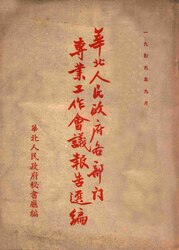 一九四九年九月
華北人民政府各部门
專業工作會議報告選編
華北人民政府秘書廳編